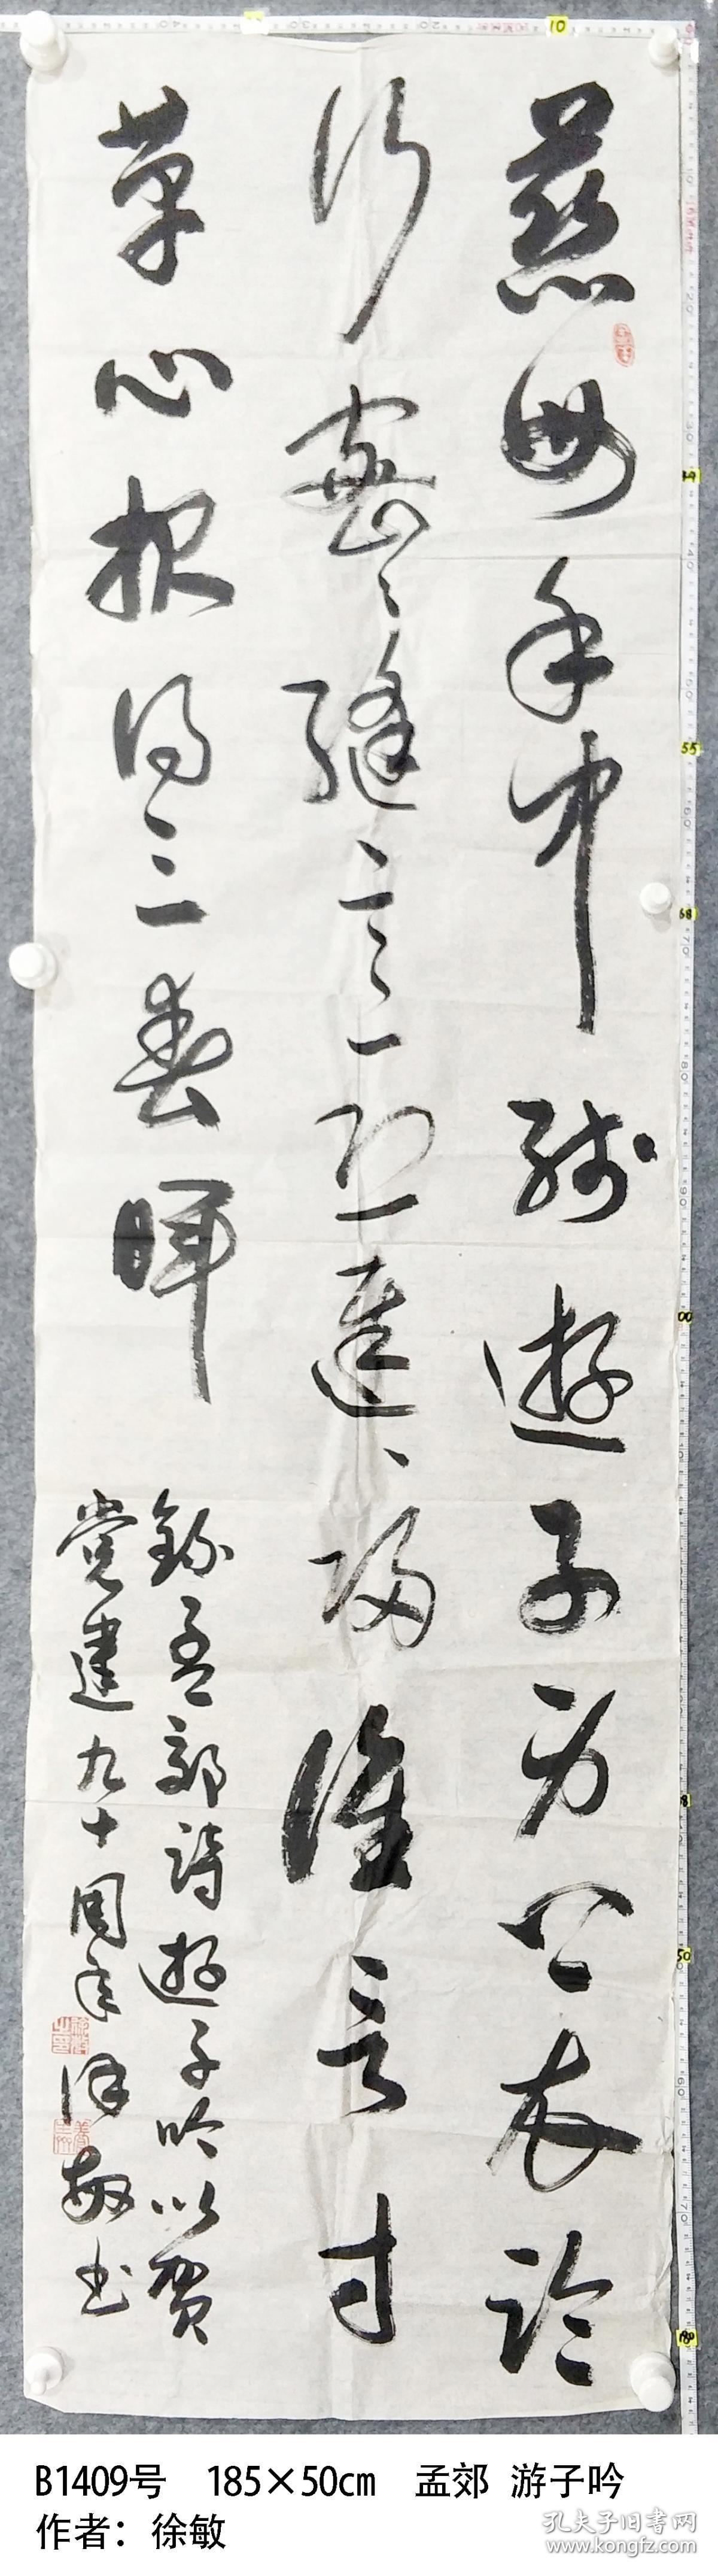 慈母手中綫遊子身上衣臨
行密〻縫意恐遲〻歸誰言寸
草心報得三春暉
錄孟郊詩遊子吟以賀
党建九十周年徐敏书
B1409号 185×50cm 孟郊 游子吟
作者：徐敏
孔夫子旧书网
www.kongfz.com